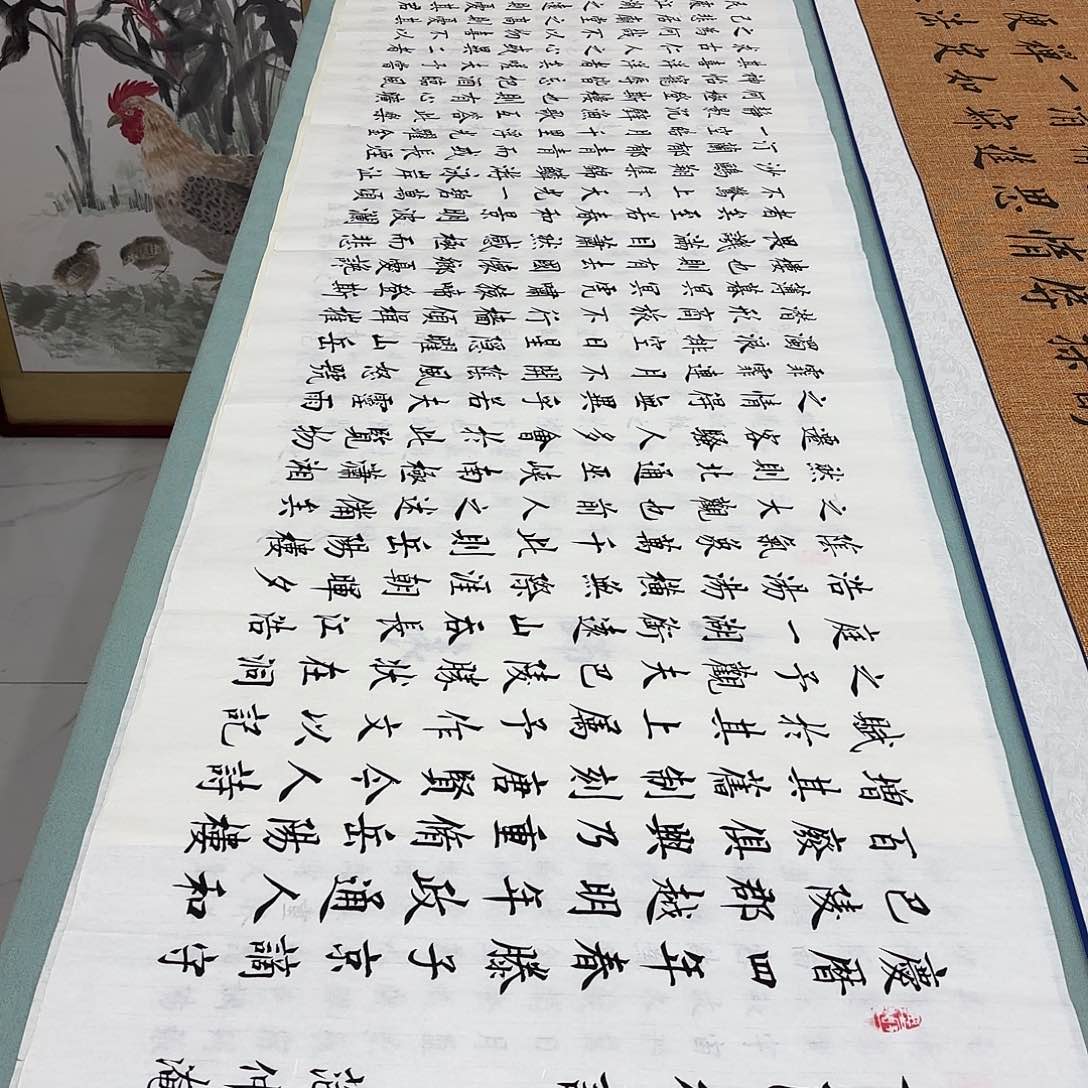 范仲淹
慶曆四年春滕子京謫守
巴陵郡越明年政通人和
百廢俱興乃重脩岳陽樓
增其舊制刻唐賢今人詩
賦於其上屬予作文以記
之予觀夫巴陵勝狀在洞
庭一湖銜遠山吞長江浩
浩湯湯橫無際涯朝暉夕
陰氣象萬千此則岳陽樓
之大觀也前人之述備矣
然則北通巫峽南極瀟湘
遷客騷人多會於此覽物
之情得無異乎若夫霪雨
霏霏連月不開陰風怒號
濁浪排空日星隱曜山岳
潛形商旅不行檣傾楫摧
薄暮冥冥虎嘯猿啼登斯
樓也則有去國懷鄉憂讒
畏譏滿目蕭然感極而悲
者矣至若春和景明波瀾
不驚上下天光一碧萬頃
沙鷗翔集錦鱗游泳岸芷
汀蘭郁郁青青而或長煙
一空皓月千里浮光躍金
靜影沉璧漁歌互答此樂
何極登斯樓也則有心曠
神怡寵辱皆忘把酒臨風
其喜洋洋者矣嗟夫予嘗
求古仁人之心或異二者
之為何哉不以物喜不以